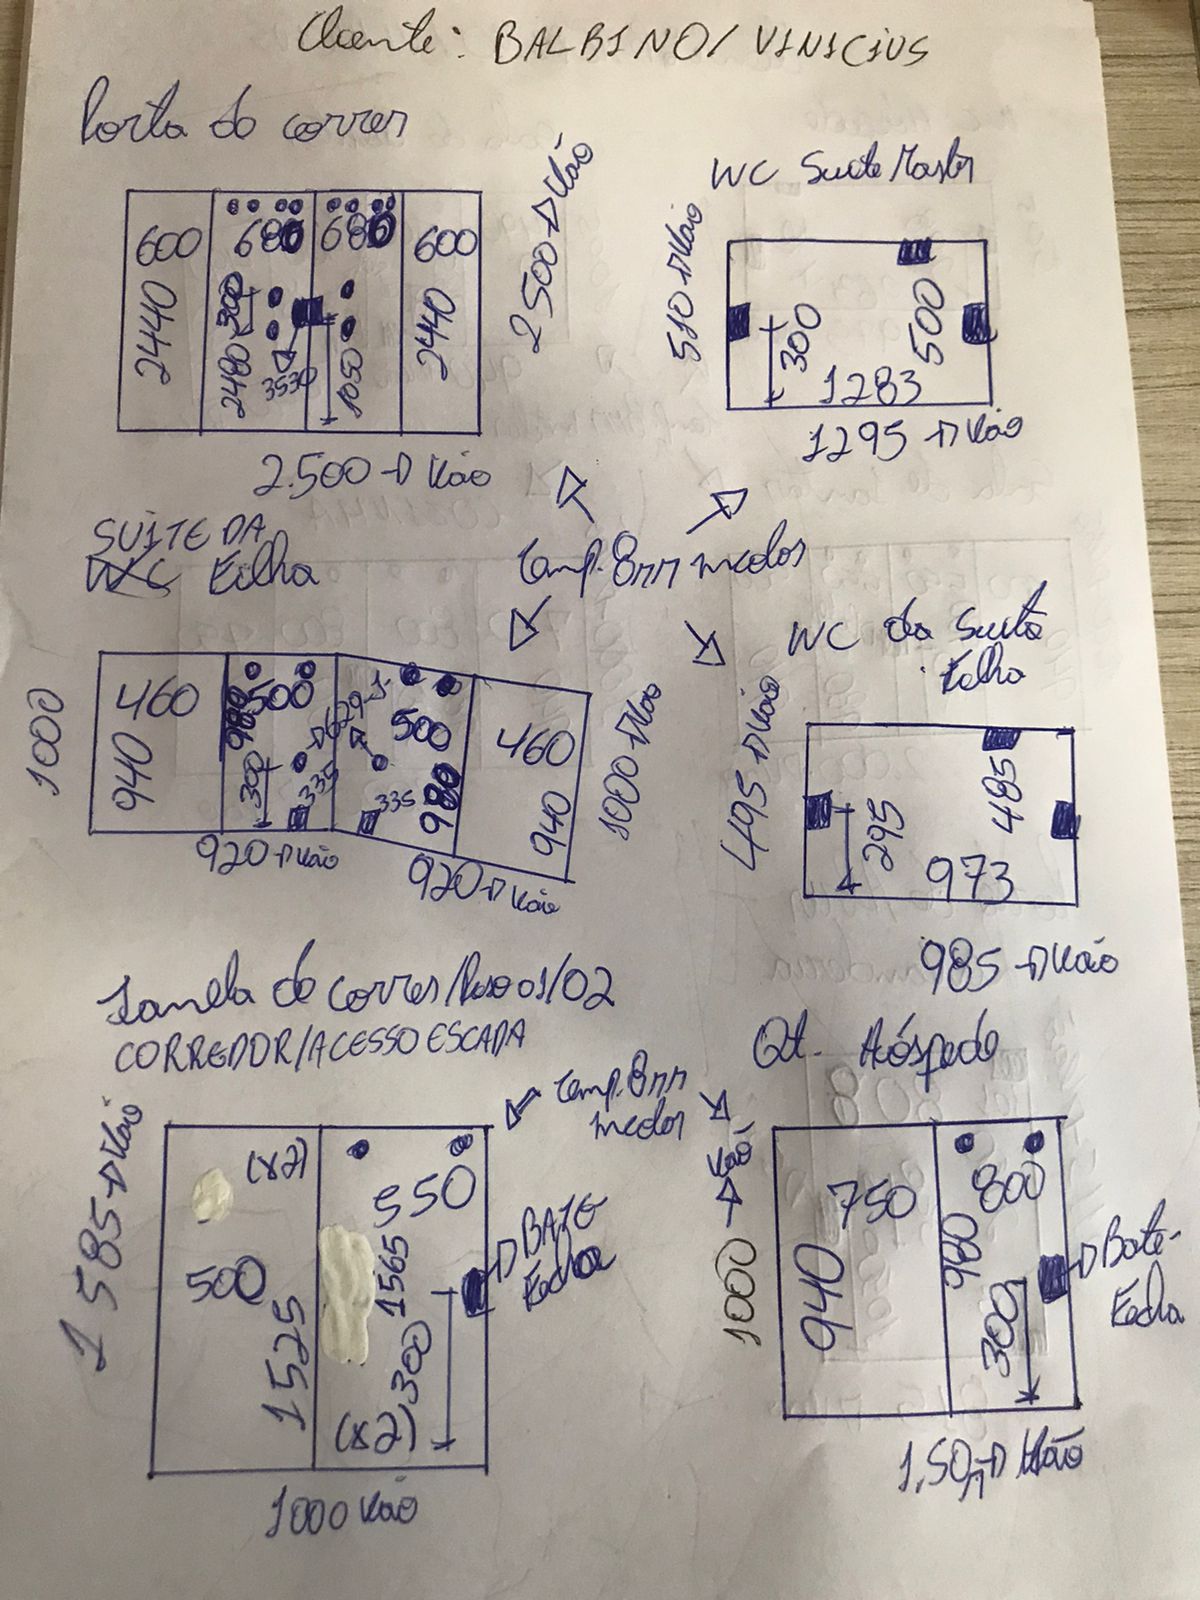 Cliente: BALBINO/ VINICIUS
Porta de correr
600
680
680
600
2440
300
2480
3530
1050
2440
2500 Vão
2.500 Vão
WC Suite Master
510 Vão
300
500
1283
1295 Vão
Temp. 8mm incolor
SUITE DA
WC Filha
1000
460
940
500
980
300
335
1629-J
500
335
980
460
940
1000 Vão
920 Vão
920 Vão
WC da Suite
Filho
495 Vão
295
485
973
985 Vão
Janela de correr/Piso 01/02
CORREDOR/ACESSO ESCADA
Temp. 8mm
incolor
1585 Vão
(x2)
500
1525
550
1565
300
(x2)
BATE
Fecha
1000 Vão
Qt. Hóspede
Vão
1000
750
940
800
980
300
Bate-
Fecha
1,50m Vão